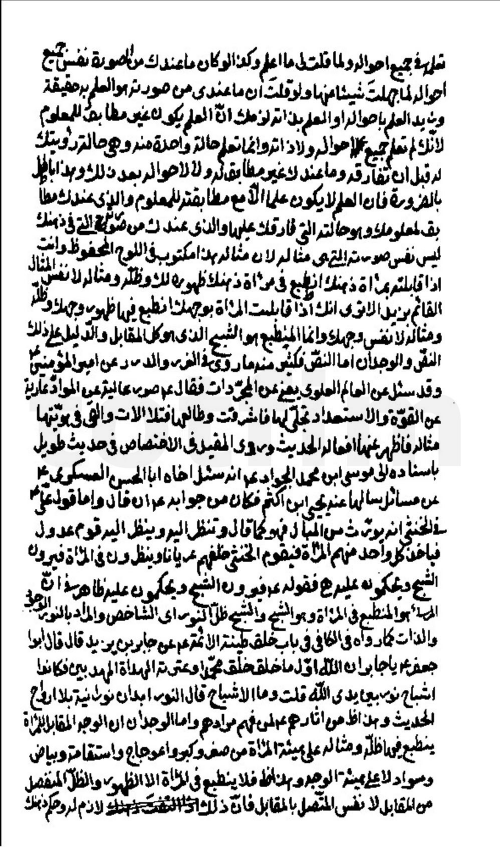 تعلم في جميع احواله ولما قلت لي ما اعلم وكذا لو كان ما عندك من الصورة نفس جميع
احواله لما جهلت شيئا عنها ولو قلت ان ما عندي من صورته هو العلم به حقيقة
باحواله او العلم بذاته لزمك ان العلم يكون غير مطابق للمعلوم
لانك لم تعلم جميع احواله ولا ذاته وانما تعلم حالة واحدة منه وهي حالة رؤيتك
له قبل ان تفارقه وما عندك غير مطابق له ولا لاحواله بعد ذلك وهذا باطل
بالضرورة فان العلم لا يكون علما الا مع مطابقته للمعلوم والذي عندك مطا
بق لمعلومك وهو حالته التي فارقك عليها والذي عندك من صورته التي في ذهنك
ليس نفس صورته التي هي مثاله لان مثاله هذا مكتوب في اللوح المحفوظ وانت
اذا قابلته بمرآة ذهنك انطبع في مرآة ذهنك ظهوره لك وظله ومثاله لا نفس المثال
القائم بزيد الا ترى انك اذا قابلت المرآة بوجهك انطبع فيها ظهور وجهك وظله
ومثاله لا نفس وجهك وانما المنطبع هو الشبح الذي هو كل المقابل والدليل على ذلك
النص والوجدان اما النص فكثير منه ما روي في الغرر والدرر عن امير المؤمنين ع
وقد سئل عن العالم العلوي يعني عن المجردات فقال ع صور عالية عن المواد عارية
عن القوة والاستعداد تجلى لها فاشرقت وطالعها فتلألأت والقى في هويتها
مثاله فاظهر عنها افعاله الحديث وروى المفيد في الاختصاص في حديث طويل
باسناده الى موسى ابن محمد الجواد ع انه سئل اخاه ابا الحسن العسكري ع
عن مسائل سالها عنه يحيى ابن اكثم فكان من جوابه ع ان قال واما قول علي ع
في الخنثى انه يورث من المبال فهو كما قال وتنظر اليه وينظر اليه قوم عدول
فياخذ كل واحد منهم المرآة فيقوم الخنثى خلفهم عريانا وينظرون في المرآة فيرون
الشبح ويحكمون عليه فقوله ع فيرون الشبح ويحكمون عليه ظاهر في ان
هو المنطبع في المرآة وهو الشبح والشبح ظل النور اي الشاخص والمراد بالنور
والذات كما رواه في الكافي في باب خلق طينة الائمة ع عن جابر بن يزيد قال قال ابو
جعفر ع يا جابر ان الله اول ما خلق خلق محمدا وعترته الهداة المهديين فكانوا
اشباح نور بين يدي الله قلت وما الاشباح قال النور ابدان نورانية بلا ارواح
الحديث وهذا ظل من اثارهم على فهم مرادهم واما الوجدان ان الوجه المقابل للمرآة
ينطبع فيها ظله ومثاله على هيئة المرآة من صغر وكبر واعوجاج واستقامة وبياض
وسواد لا على هيئة الوجه وهذا فلا ينطبع في المرآة الا الظهور والظل المنفصل
من المقابل لا نفس المتصل بالمقابل فان ذلك لازم له وحكم ذهنك